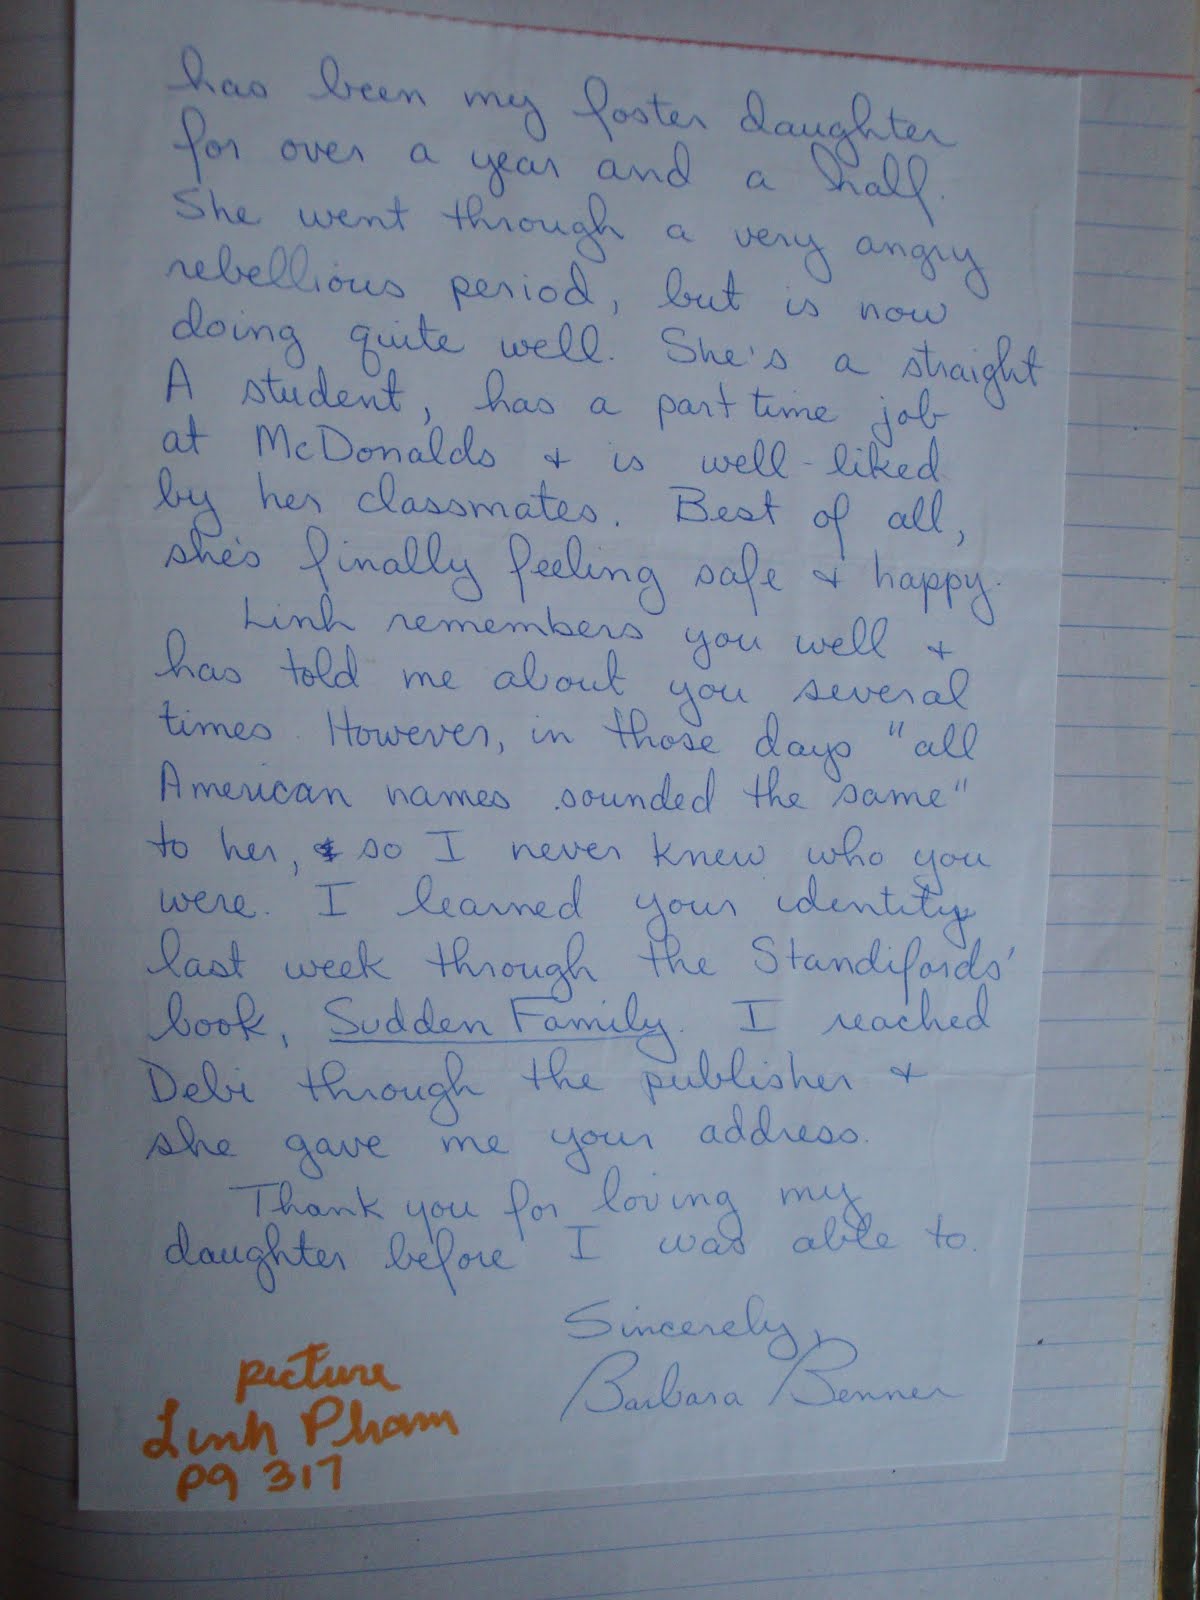 has been my foster daughter
for over a year and a half.
She went through a very angry
rebellious period, but is now
doing quite well. She's a straight
A student, has a part time job
at McDonalds + is well-liked
by her classmates. Best of all,
she's finally feeling safe + happy.
Linh remembers you well +
has told me about you several
times. However, in those days "all
American names sounded the same"
to her, so I never knew who you
were. I learned your identity
last week through the Standifords'
book, Sudden Family. I reached
Debi through the publisher +
she gave me your address.
Thank you for loving my
daughter before I was able to.
Sincerely,
Barbara Benner
picture
Linh Pham
pg 317